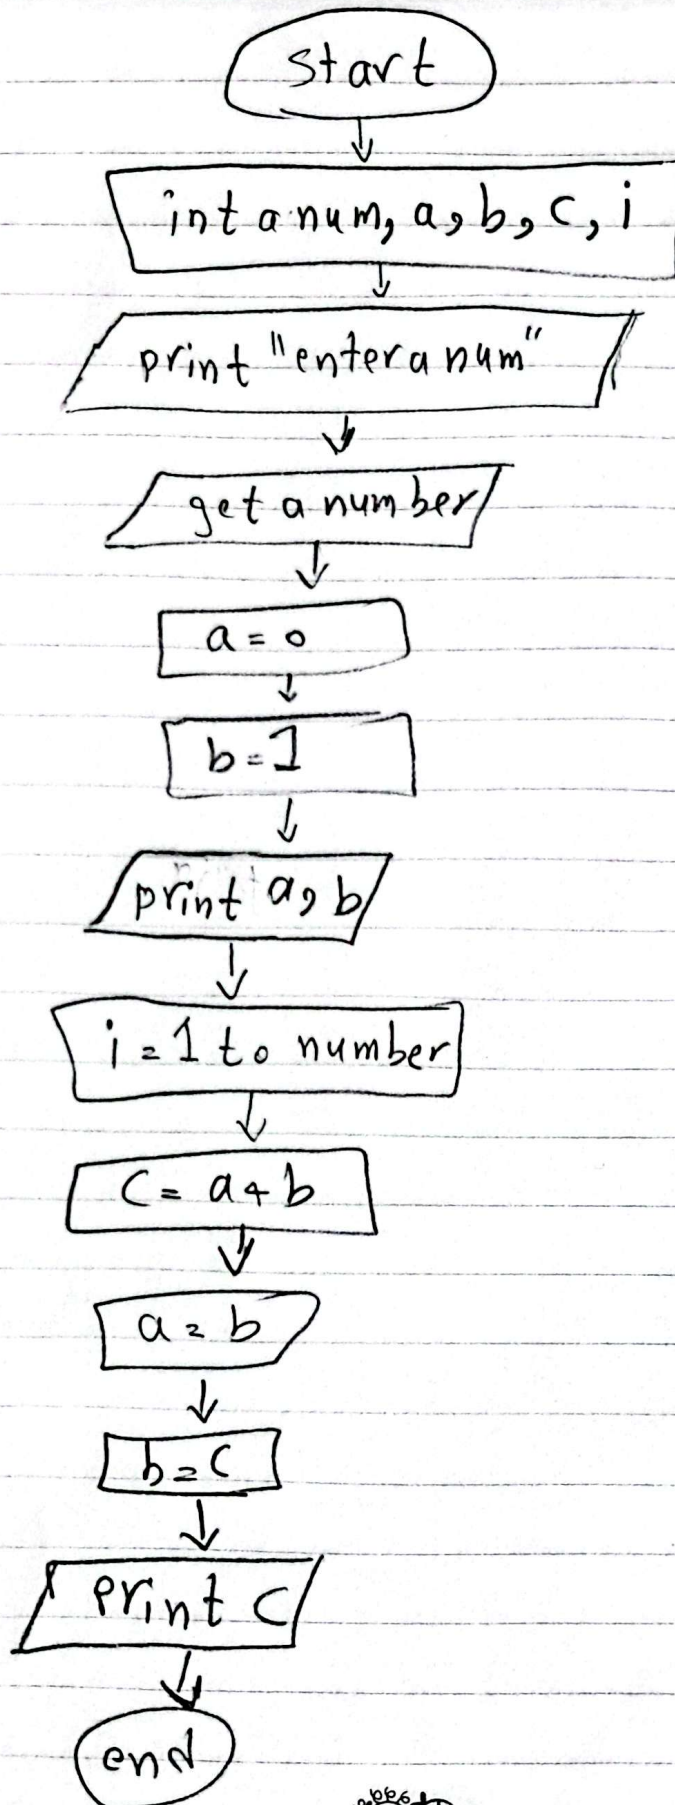 start
int a num, a, b, c, i
print "enter a num"
get a number
a = 0
b = 1
print a, b
i = 1 to number
C = a + b
a = b
b = C
print C
end